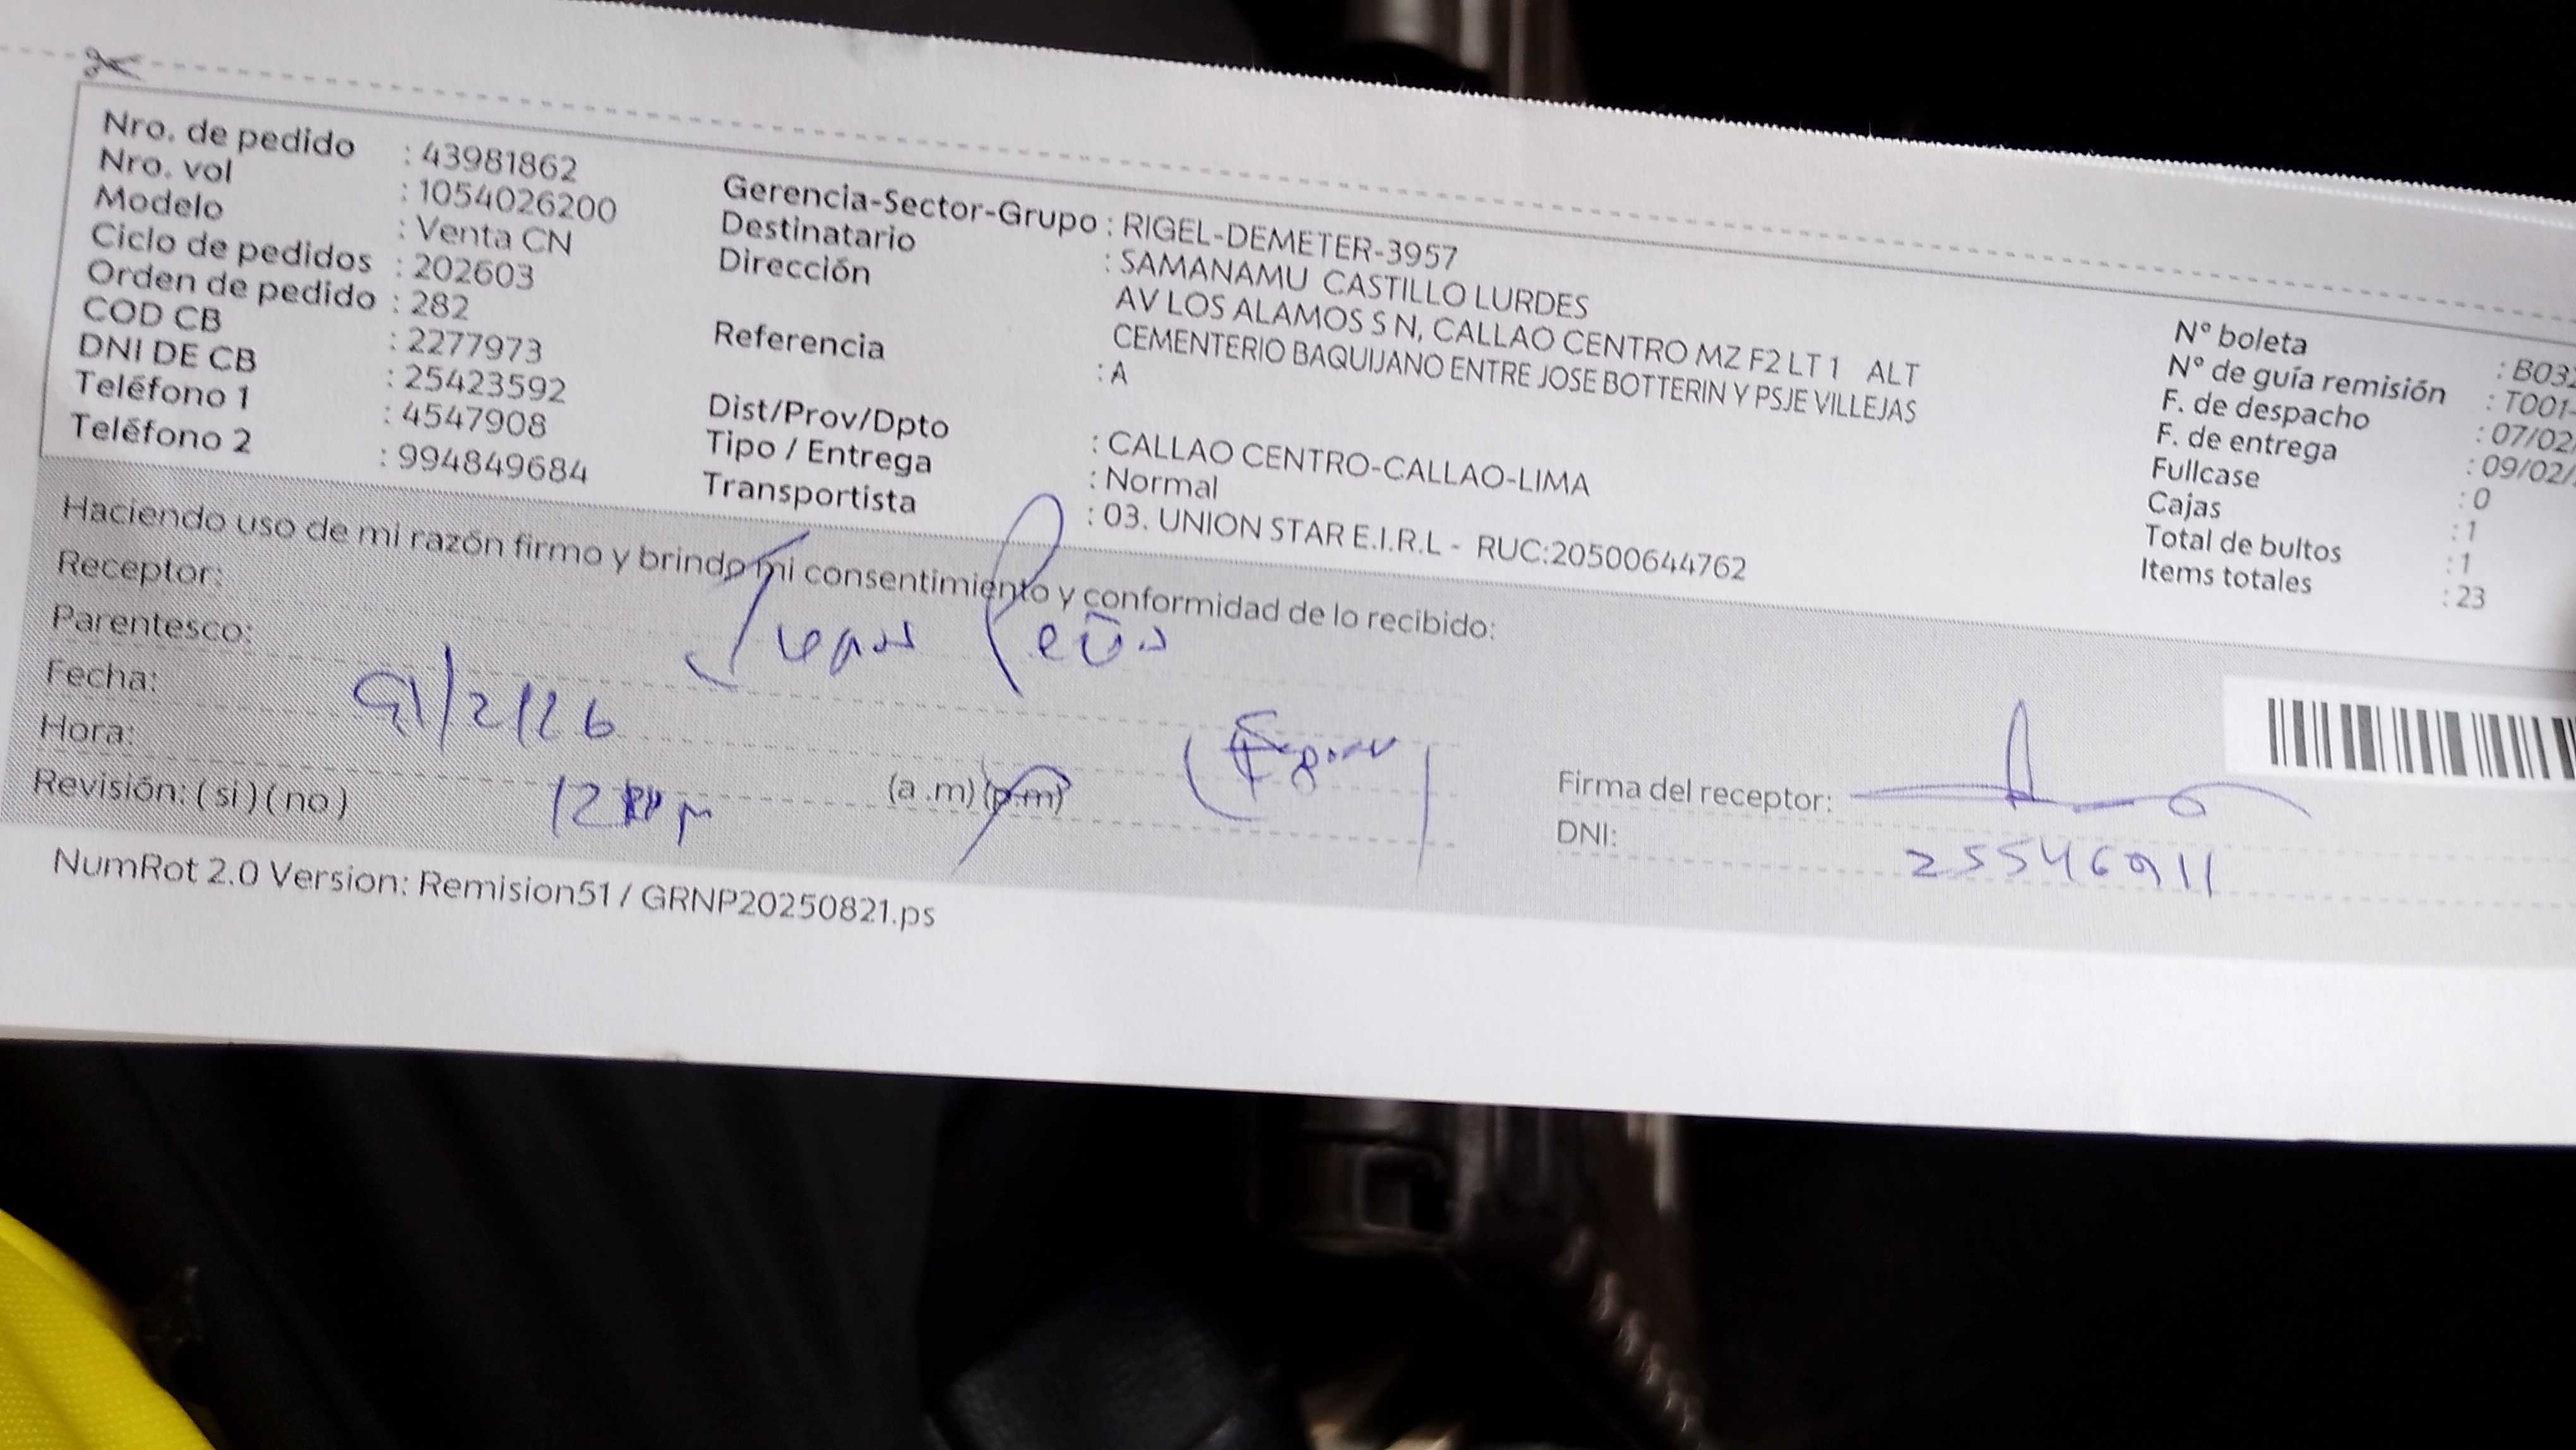 Nro. de pedido : 43981862
Nro. vol : 1054026200
Modelo : Venta CN
Ciclo de pedidos : 202603
Orden de pedido : 282
COD CB : 2277973
DNI DE CB : 25423592
Teléfono 1 : 4547908
Teléfono 2 : 994849684
Gerencia-Sector-Grupo : RIGEL-DEMETER-3957
Destinatario : SAMANAMU CASTILLO LURDES
Dirección AV LOS ALAMOS S N, CALLAO CENTRO MZ F2 LT 1 ALT
CEMENTERIO BAQUIJANO ENTRE JOSE BOTTERIN Y PSJE VILLEJAS
Referencia : A
Dist/Prov/Dpto : CALLAO CENTRO-CALLAO-LIMA
Tipo / Entrega : Normal
Transportista : 03. UNION STAR E.I.R.L - RUC:20500644762
N° boleta : B032
N° de guía remisión : T001-
F. de despacho : 07/02/
F. de entrega : 09/02/
Fullcase : 0
Cajas : 1
Total de bultos : 1
Items totales : 23
Haciendo uso de mi razón firmo y brindo mi consentimiento y conformidad de lo recibido:
Receptor: Peña
Parentesco:
Fecha: 9/2/26
Hora: 12 (a .m) (p.m)
Revisión: ( si ) ( no )
Firma del receptor:
DNI: 25546911
NumRot 2.0 Version: Remision51 / GRNP20250821.ps